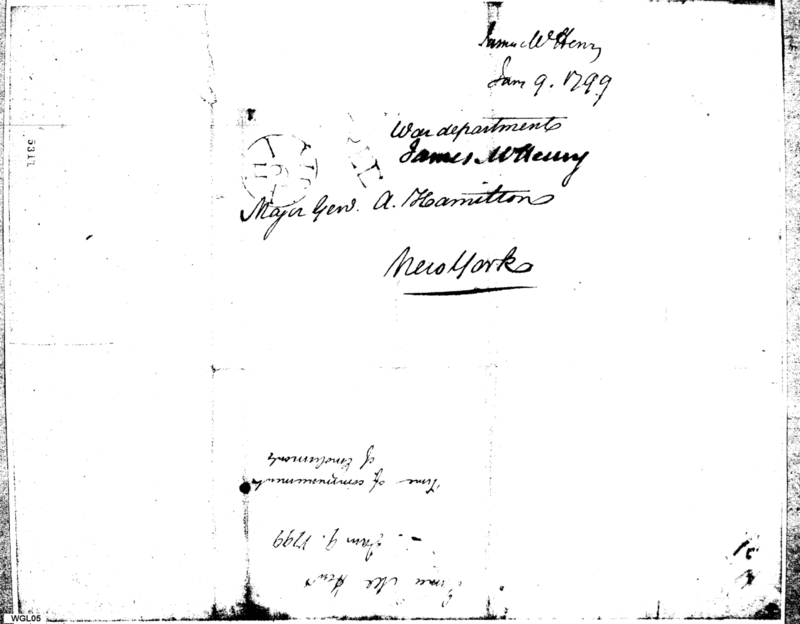 James McHenry
Jan 9. 1799
War department
James McHenry
Major Genl. A. Hamilton
New York
James McHenry
Jan 9. 1799
Time of commencement
of Emoluments
5311
WGL05